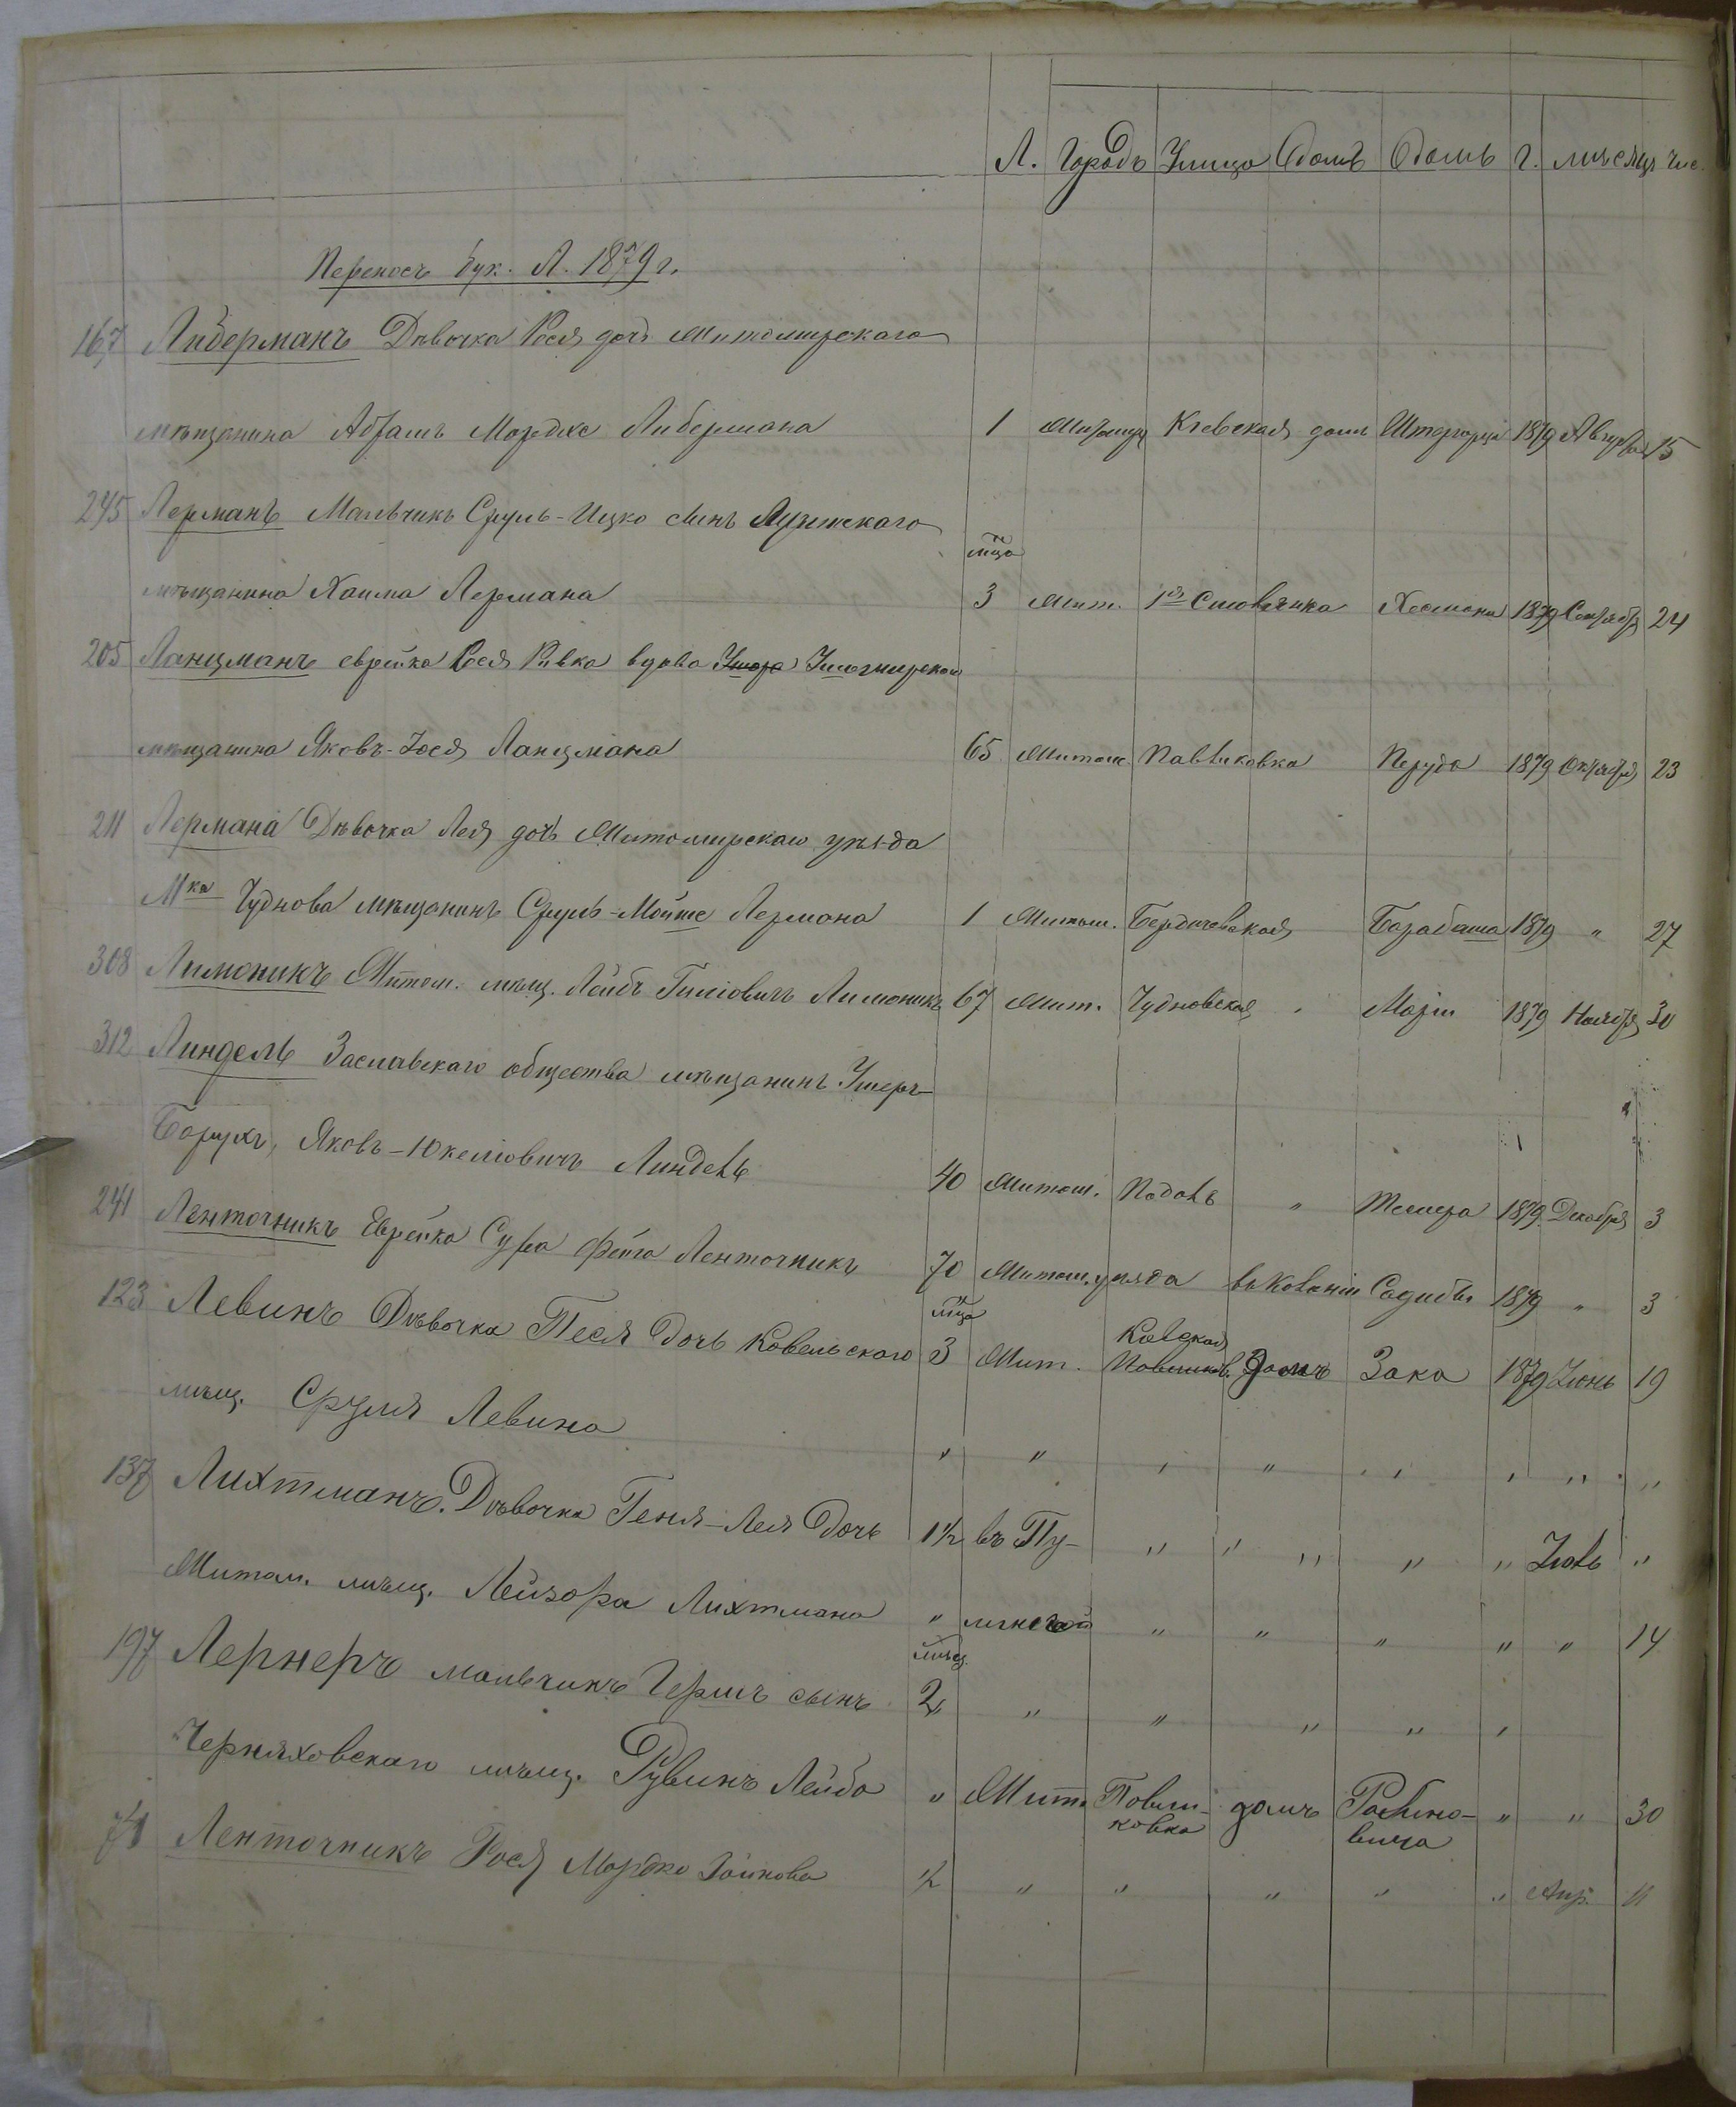 Л. Городъ Улица Домъ Домъ г. мѣсяцъ чис.
Переносъ бук. Л. 1879 г.
167 Либерманъ Дѣвочка Рося дочь Житомирскаго
мѣщанина Абрамъ Мордке Либермана 1 Житомир Кіевская домъ 1879 Августа 15
245 Лерманъ Мальчикъ Сруль-Ицко сынъ
мѣщанина Хаима Лермана 3 мца Жит. 1879 Сентября 24
205 Ланцманъ еврейка Рося Ривка вдова Житомирскаго
мѣщанина Яковъ-Іося Ланцмана 65 Житом. Павликовка 1879 Октября 23
211 Лермана Дѣвочка Лея дочь Житомирскаго уѣзда
Мка Чуднова мѣщанинъ Сруль-Мойше Лермана 1 Житом. Бердичевская Барабаша 1879 " 27
308 Лимоникъ Житом. мѣщ. Лейбъ Лимоникъ 67 Жит. Чудновская " 1879 Ноября 30
312 Линдель Заславскаго общества мѣщанинъ Ушеръ-
Борухъ, Яковъ-Юкеліовичъ Линдель 40 Житом. Подоль " 1879 Декабря 3
241 Ленточникъ Еврейка Сура Фейга Ленточникъ 70 Житом. уѣзда 1879 " 3
123 Левинъ Дѣвочка Песя дочь Ковельскаго 3 мца Жит. Павликов. домъ Зака 1879 Іюнь 19
мѣщ. Сруля Левина " " " " " " " "
137 Лихтманъ. Дѣвочка Геня-Лея дочь 1½ въ Пу- " " " " " Іюль "
Житом. мѣщ. Лейзора Лихтмана " " " " " " 14
197 Лернеръ мальчикъ Гершъ сынъ 2 мѣсц. " " " " "
Черняховскаго мѣщ. Рувинъ Лейба " Жит. Павли-ковка домъ Рабино-вича " " 30
71 Ленточникъ Рося Мордко ½ " " " " " Апр. 11